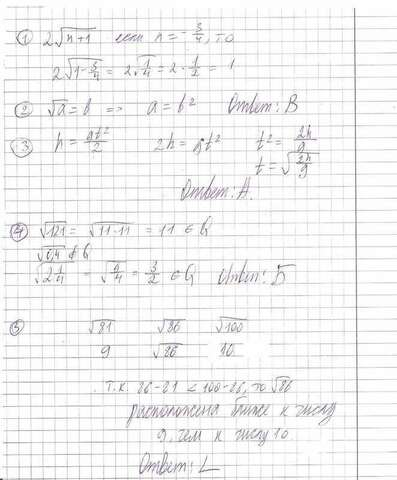 ① 2√(n+1) если n = -3/4, то
2√(1-3/4) = 2√(1/4) = 2·1/2 = 1
② √a = b => a = b² Ответ: В
③ h = gt²/2 2h = gt² t² = 2h/g
t = √(2h/g)
Ответ: А.
④ √121 = √(11·11) = 11 ∈ Q
√0,4 ∉ Q
√(2 1/4) = √(9/4) = 3/2 ∈ Q Ответ: Б
⑤ √81 √86 √100
9 √86 10
Т.К. 86-81 < 100-86, то √86
расположена ближе к числу
9, чем к числу 10
Ответ: L